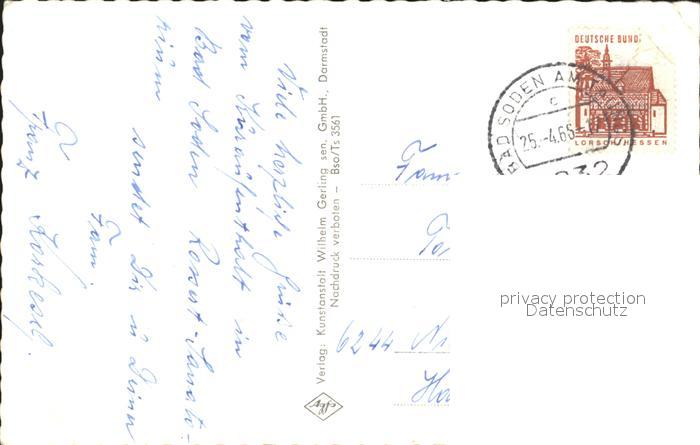 Viele herzliche Grüße
vom Kuraufenthalt in
Bad Soden Kurort-Sanato-
rium
sendet Dir u Deiner
Fam.
Franz
Verlag: Kunstanstalt Wilhelm Gerling sen. GmbH., Darmstadt
Nachdruck verboten – Bso/Ts 3561
Agfa
DEUTSCHE BUND
LORSCH/HESSEN
BAD SODEN AM
c
25.-4.66
Fam
6244
privacy protection
Datenschutz